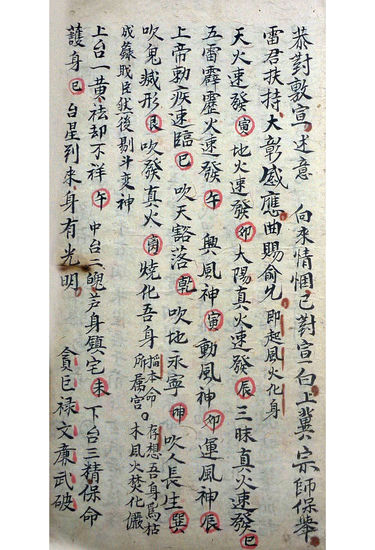 恭對敷宣 述意 向來情悃已對宣白上冀宗師保舉
雷君扶持大彰感應曲賜俞允即起風火化身
天火速發寅地火速發卯大陽真火速發辰三昧真火速發巳
五雷霹靂火速發午 興風神寅動風神卯運風神辰
上帝勅疾速臨巳 吹天豁落乾 吹地永寧坤 吹人長生巽
吹鬼滅形艮吹發真火 燒化吾身稲本命所属宮。存想吾身為枯木風火焚化儼
成蘇賎臣然後剔斗变神
上台一黄祛却不祥午 中台二魄芦身鎮宅未 下台三精保命
護身巳 台星到来身有光明 貪巨禄文亷武破